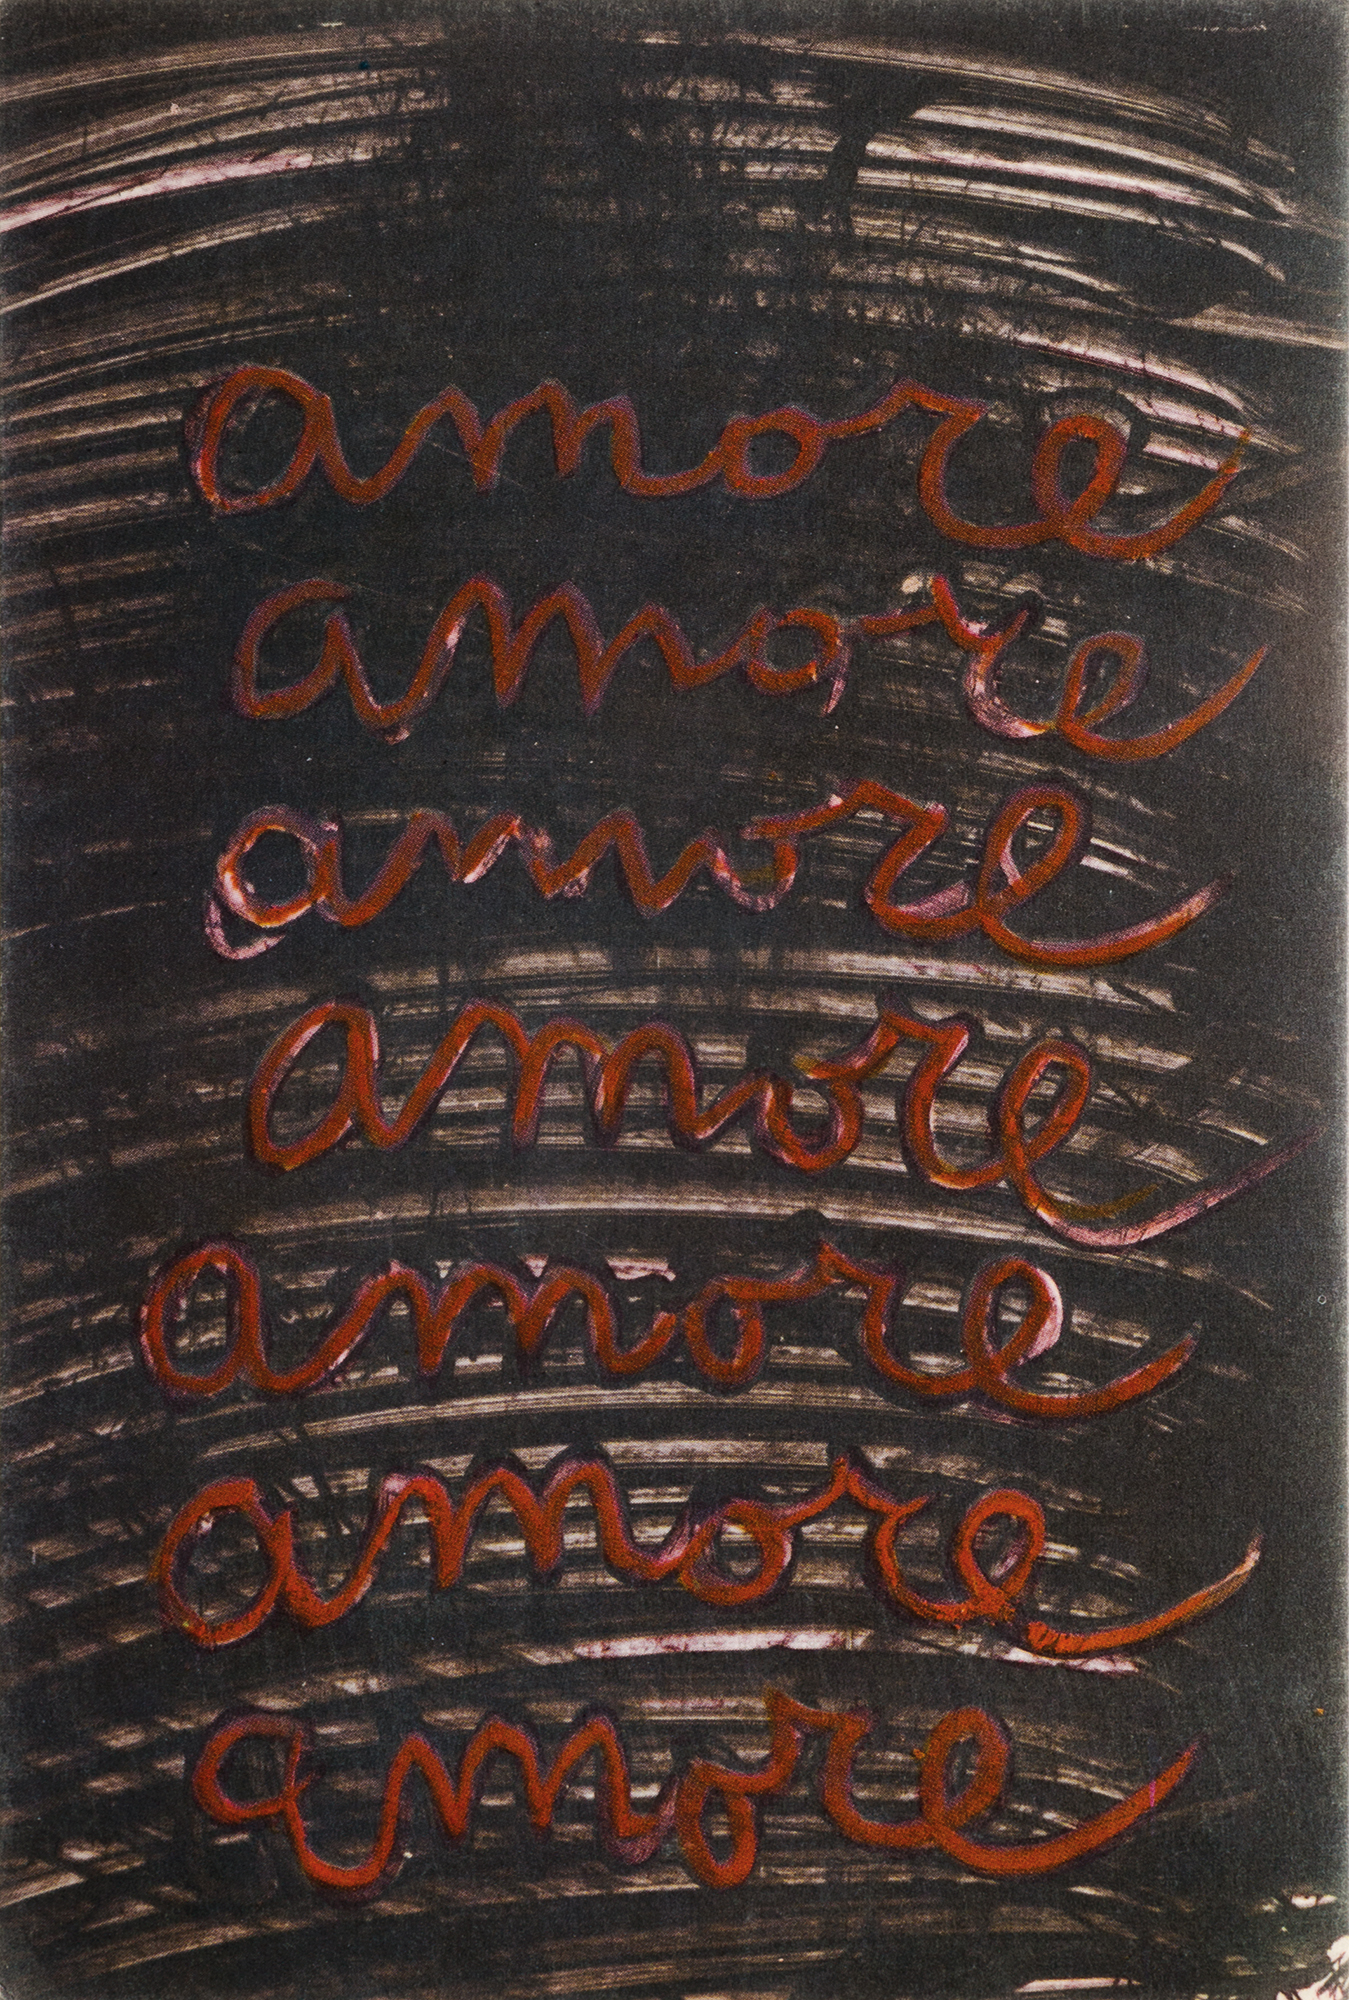 amore
amore
amore
amore
amore
amore
amore